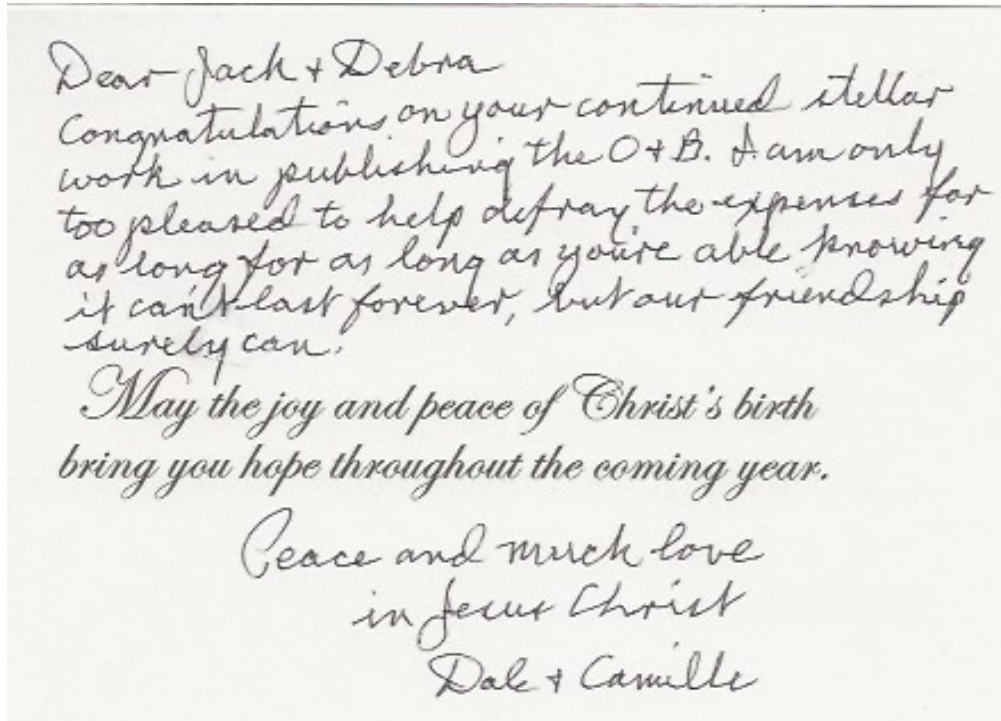 Dear Jack + Debra
Congratulations on your continued stellar
work in publishing the O + B. I am only
too pleased to help defray the expenses for
as long for as long as you're able knowing
it can't last forever, but our friendship
surely can.
May the joy and peace of Christ's birth
bring you hope throughout the coming year.
Peace and much love
in Jesus Christ
Dale + Camille